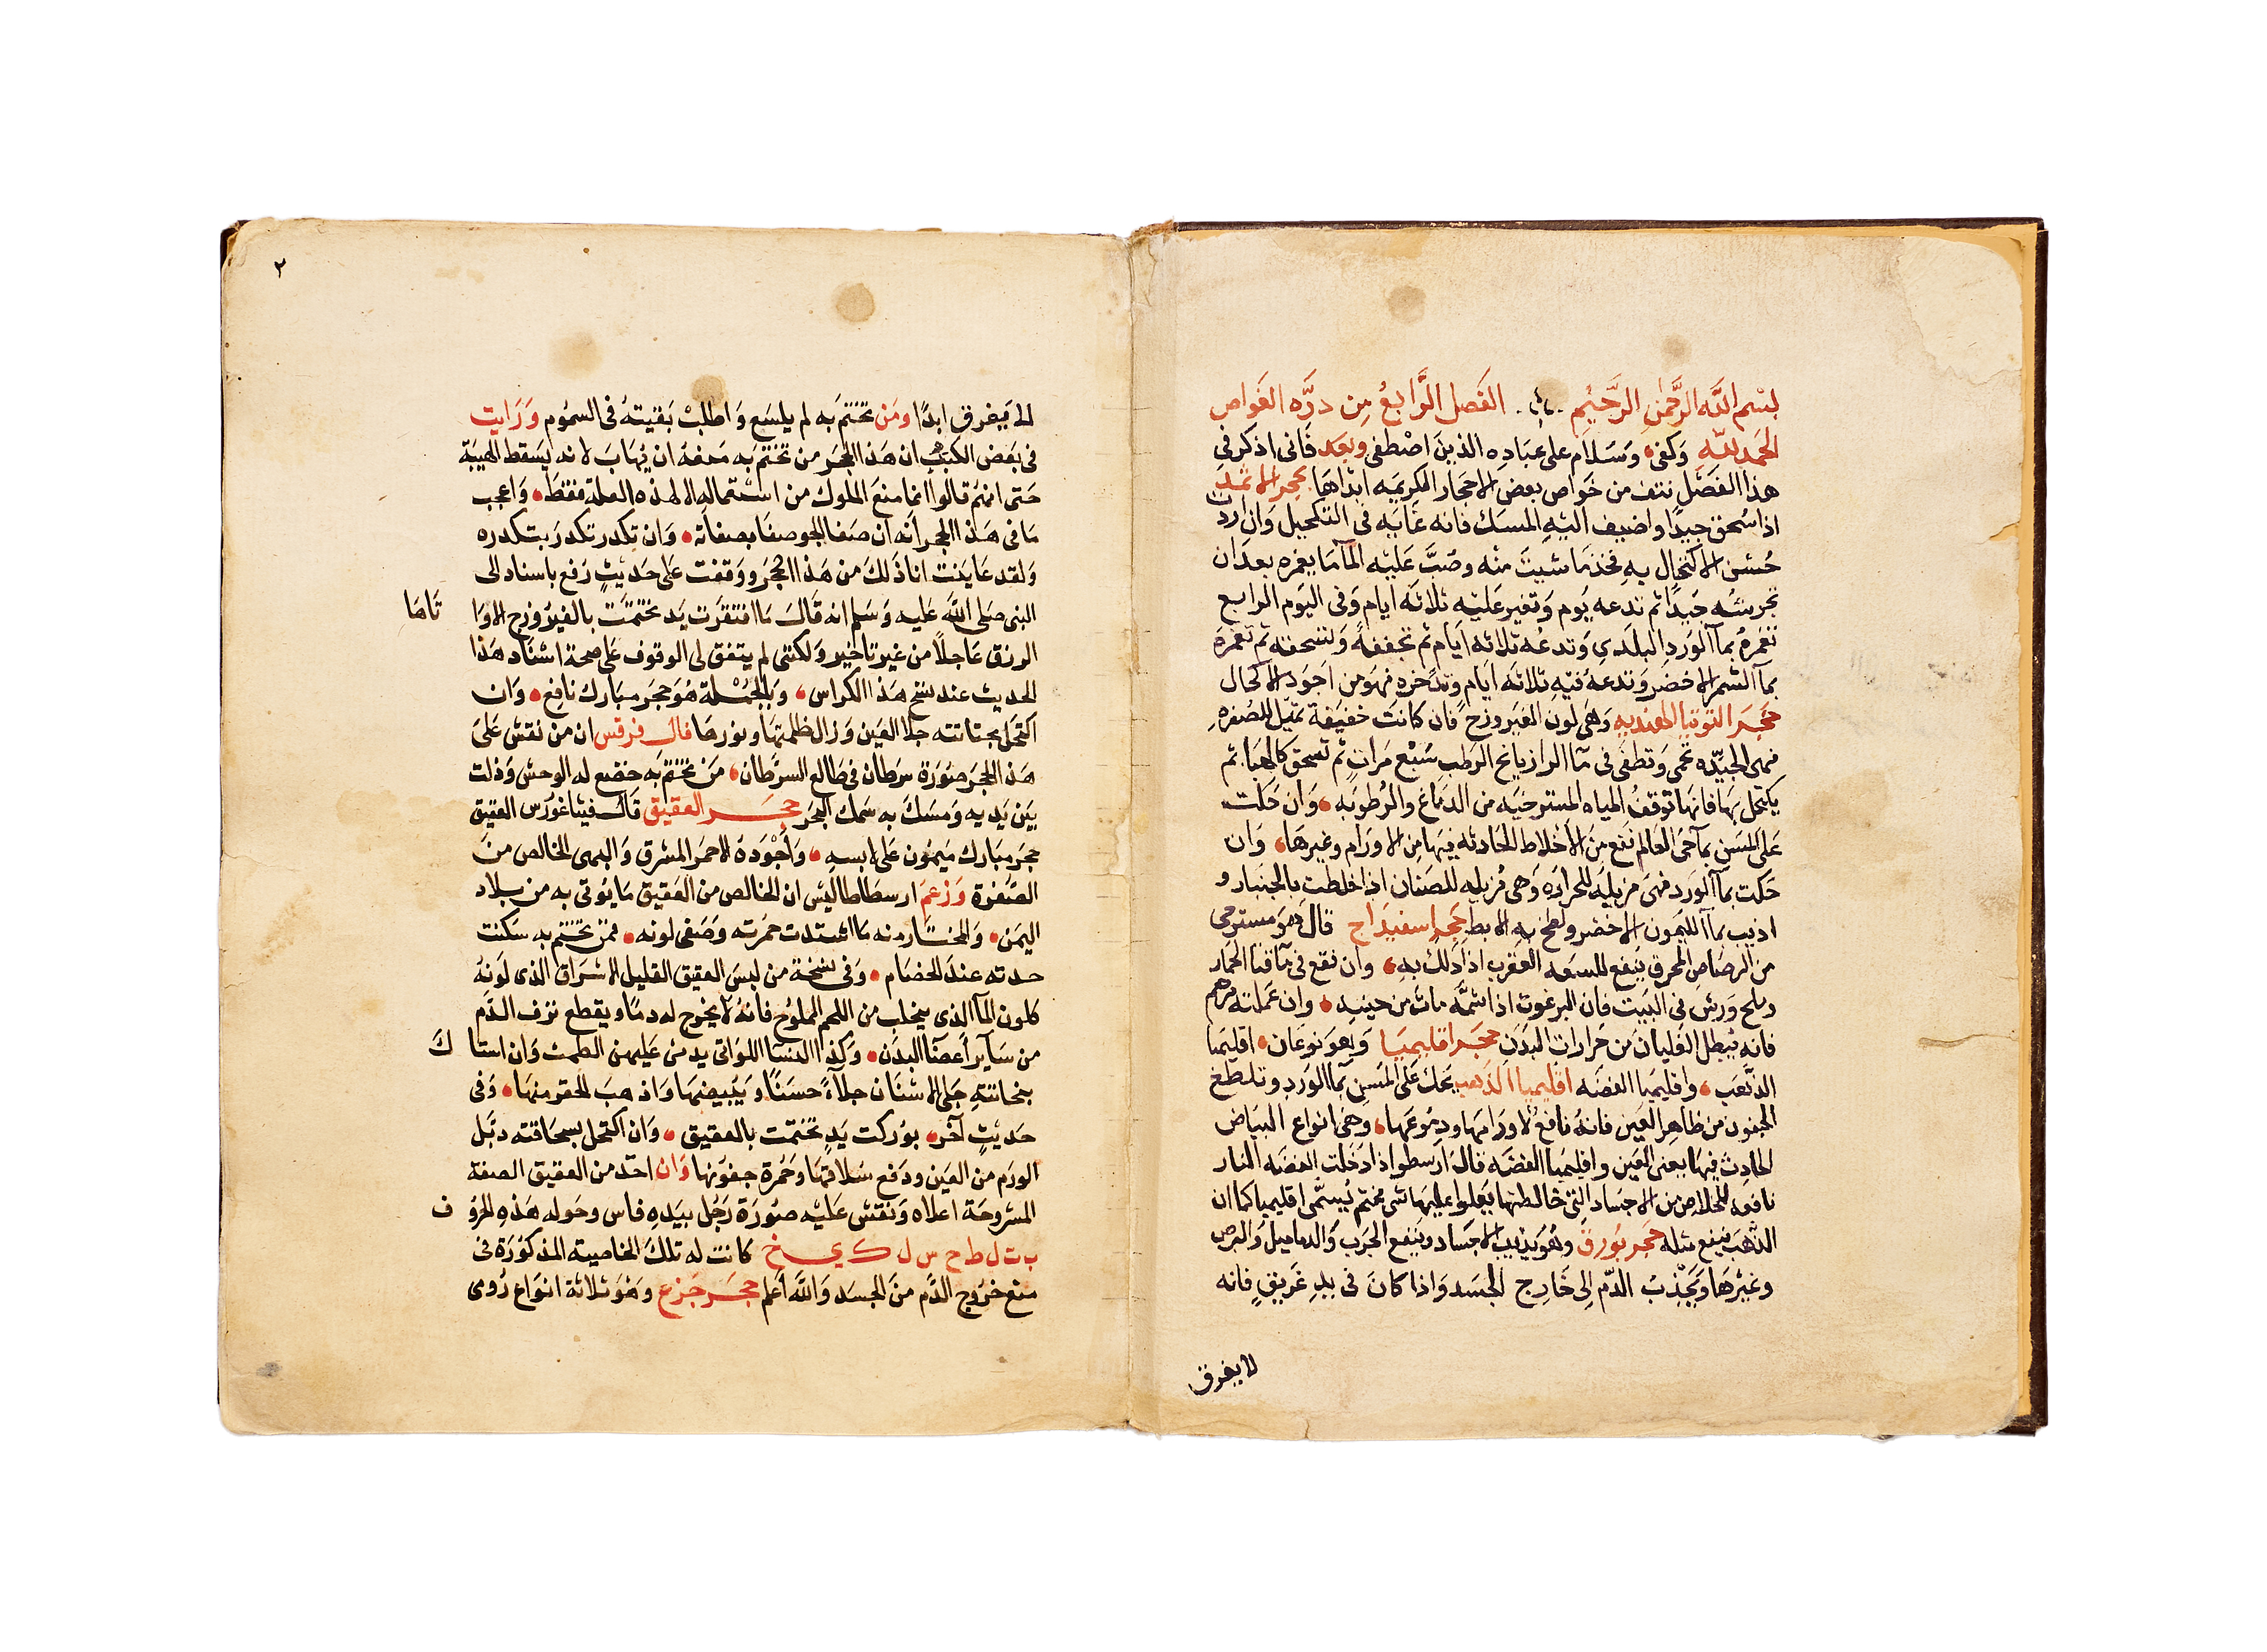 بسْم اللَّه الرَّحْمن الرَّحيْم الفَصل الرَّابعُ مِن درَّه الغَواص
الحَمد للّهِ وَكفى وَسَلام على عبَادِه الذينَ اصْطفى وبعد فَانى اذكر فى
هذا الفَصْل نتف من خَواص بعض الاحجَار الكريميه ابدَاهَا بحجر الاثمد
اذا سُحق جيدًا واضيف اليْهِ المسَك فانه غايَه فى التكحيل وَان اردْت
حُسْن الاكتحال بهِ فخذ مَا شيتَ منْه وصُبَّ عَليْه المآ مَا يغمره بعدَ ان
تجرشهُ جَيدًا ثم تدعه يَوم وَتغير عَليْه ثلاثَه ايَام وَفى اليَوم الرابع
تغمرهُ بمآ الوَردِ البلَدي وَتدعُه ثلاثه ايَام ثم تجففهُ وَتسحقه ثم تغمرَه
بمآ الشمر الاخضر وَتدعهُ فيْهِ ثلاثَه ايَام وَتدخره فهوَ من اجوَد الاكحال
حَجَر التوتيا الهنديه وَهىَ لون الفيَروزج فان كانَت خفيفَة تميَل للصُفرهِ
فهى الجيّده تحْمى وَتطفى فى مآ الرازيانج الرَطب سَبْع مَراتٍ ثم تسحق كالهبَا ثم
يكتحل بهَا فانهَا توقفُ الميَاه المسترخيَه من الدمَاغ والرُطوبَه وَان حَكت
عَلى المسَن بمآ حَى العَالم نفع منَ الاخلاط الحَادثه فيهَا مِن الاورَام وغيرهَا وَان
حَكت بمآ الوَرد فهىَ مزيليَه للحرارَه وَهى مُزيله للصَنان اذا خلطت بالجنبار و
اذيب بمآ الليمون الاخضر ولطخ بهِ الابط حَجر اسفيدَاج قالَ هوَ مستوحى
من الرصَاص المحرق ينفع للسَعه العَقرب اذا دلك بهِ وان نقع فى مآ قثا الحمَار
وملح وَرش فى البَيت فان البرغوث اذا شمَّه مات من حينهِ وان عَملته مرهم
فانه يُبطل الغَليان من حَرارات البَدَن حجَر اقليميَا وَهوَ نوعَان اقليمَيا
الذَّهَب واقليميَا الفضَه اقليميا الذَهب يحَك عَلى المَسِن بمآ الوَرد وتلطخ
الجفون من ظاهِر العَين فانهُ نافعُ لاورَامهَا ودمُوعهَا وهىَ انواع البيَاض
الحَادِث فيهَا يعنى العَين واقليميَا الفضَه قالَ ارسَطوا اذا دَخلت الفضَه النار
نافعه للخلاص من الاجسَاد التى خالطتهَا يَعلوا عليهَا شى مختم يُسَمى اقليميا كما ان
الذهَب ينفع مثله حجَر بُورق وهُوَ يذيب الاجسَاد وَينفع الجرَب وَالدماميل وَالبرص
وغيْرهَا وَيَجْذِبُ الدّم اِلى خَارج الجسَد وَاذا كانَ فى يدِ غَريقٍ فانه
لا يغرق
٢
لا يَغرق ابدًا ومَن تختم به لم يلسَع وَاطلبْ بَقيتهُ فى السمُوم وَرَايت
فى بَعض الكتب ان هَذا الحجَر من تختم به مَنعهُ ان يُهَابَ لانه يَسقط الهيبَة
حَتى انهُم قالوا انما منعَ الملوك من استعماله الا لهذه العلة فقط وَاعجب
مَا فى هذا الحجر انه ان صَفا الجو صفَا بصفائه وَان تكدر تكدر بتكدره
وَلقد عَاينت انا ذَلكَ من هَذا الحجَر وَوقفت على حَديثٍ رَفع باسناد الى
النبى صَلى اللَّه عَليه وَسَلم انه قَالَ مَا افتقرَت يَد تختمَت بالفيرُوزج الاوَا
تَاهَا
الرزق عَاجلاً من غير تاخير وَلكننى لم يتفق لى الوقوف عَلى صحة اسْنَاد هَذا
الحديث عند نسخ هَذا الكراس وَبالجُمْلة هُوَ حجَر مبَارك نافِع وَان
اكتحَل بحتاتته جلا العَين وَزال ظلمتهَا ونورهَا قال فرقس ان من نقش عَلىَ
هَذا الحجَر صوُرَة سَرطَان فى طَالع السرَّطَان مَن تختم به خضع له الوحش وَذلت
بَيْن يَديه وَمسَكَ به سمَك البحَر حجَر العَقيق قَالَ فيثاغورس العَقيق
حجَر مبَارك مَيمُون عَلى لابسهِ وَاجْوَدهُ الاحمَر المشرق وَالبهى الخالص منَ
الصَّفرة وَزعمَ ارسطَاطَاليس ان الخالص من العَقيق مَا يوُتى به من بلاد
اليمَن وَالمختَار منه مَا اشتدت حمَرته وَصَفى لونه فمن تختم به سَكنت
حدته عندَ الخصَام وَفى نسْخة من لبسَ العقيق القليل الاشرَاق الذى لَونهُ
كلون المآ الذى ينحلب من اللحم المملوح فانهُ لا يخرج له دمًا ويقطع نزف الدَّم
من سَآير اعضَآ البدَن وَكذا النسَآ اللوَاتى يدمىُ عَليهن الطمث وَان استا
كَ
بنحاتتهِ جَلى الاسْنَان جلآءً حسَنًا وَيبيضهَا وَاذهبَ الحَفر منهَا وَفى
حَديثٍ آخر بوُركت يَدٍ تختمت بالعَقيق وَان اكتحل بسحَاقته دبَّل
الورَم من العَين ودَفع سَلاقهَا وَحُمرَة جفوَنها وَان اخذ من العقيق الصفة
المشروحَة اعلاه وَنقش عَليْه صوُرَة رَجُل بيَدِهِ فاس وحَوله هَذِهِ الحرُو
ف
ب ت ل ط ح س ل ك ي خ كانت له تلكَ الخاصيته المذكوُرَة فىَ
منع خرُوج الدَّم منَ الجسَد وَاللَّه اعلم حجَر جَزع وَهُوَ ثلاثة انوَاع رُوى